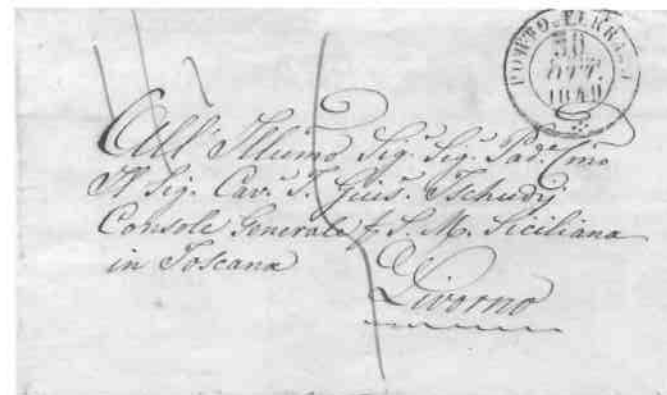 PORTO-FERRAJO
30
OTT.
1849
All' Illumo Sig. Sig. Pad. Cmo
Il Sig. Cav. Gius. Tschudy
Console Generale f. S. M. Siciliana
in Toscana
Livorno